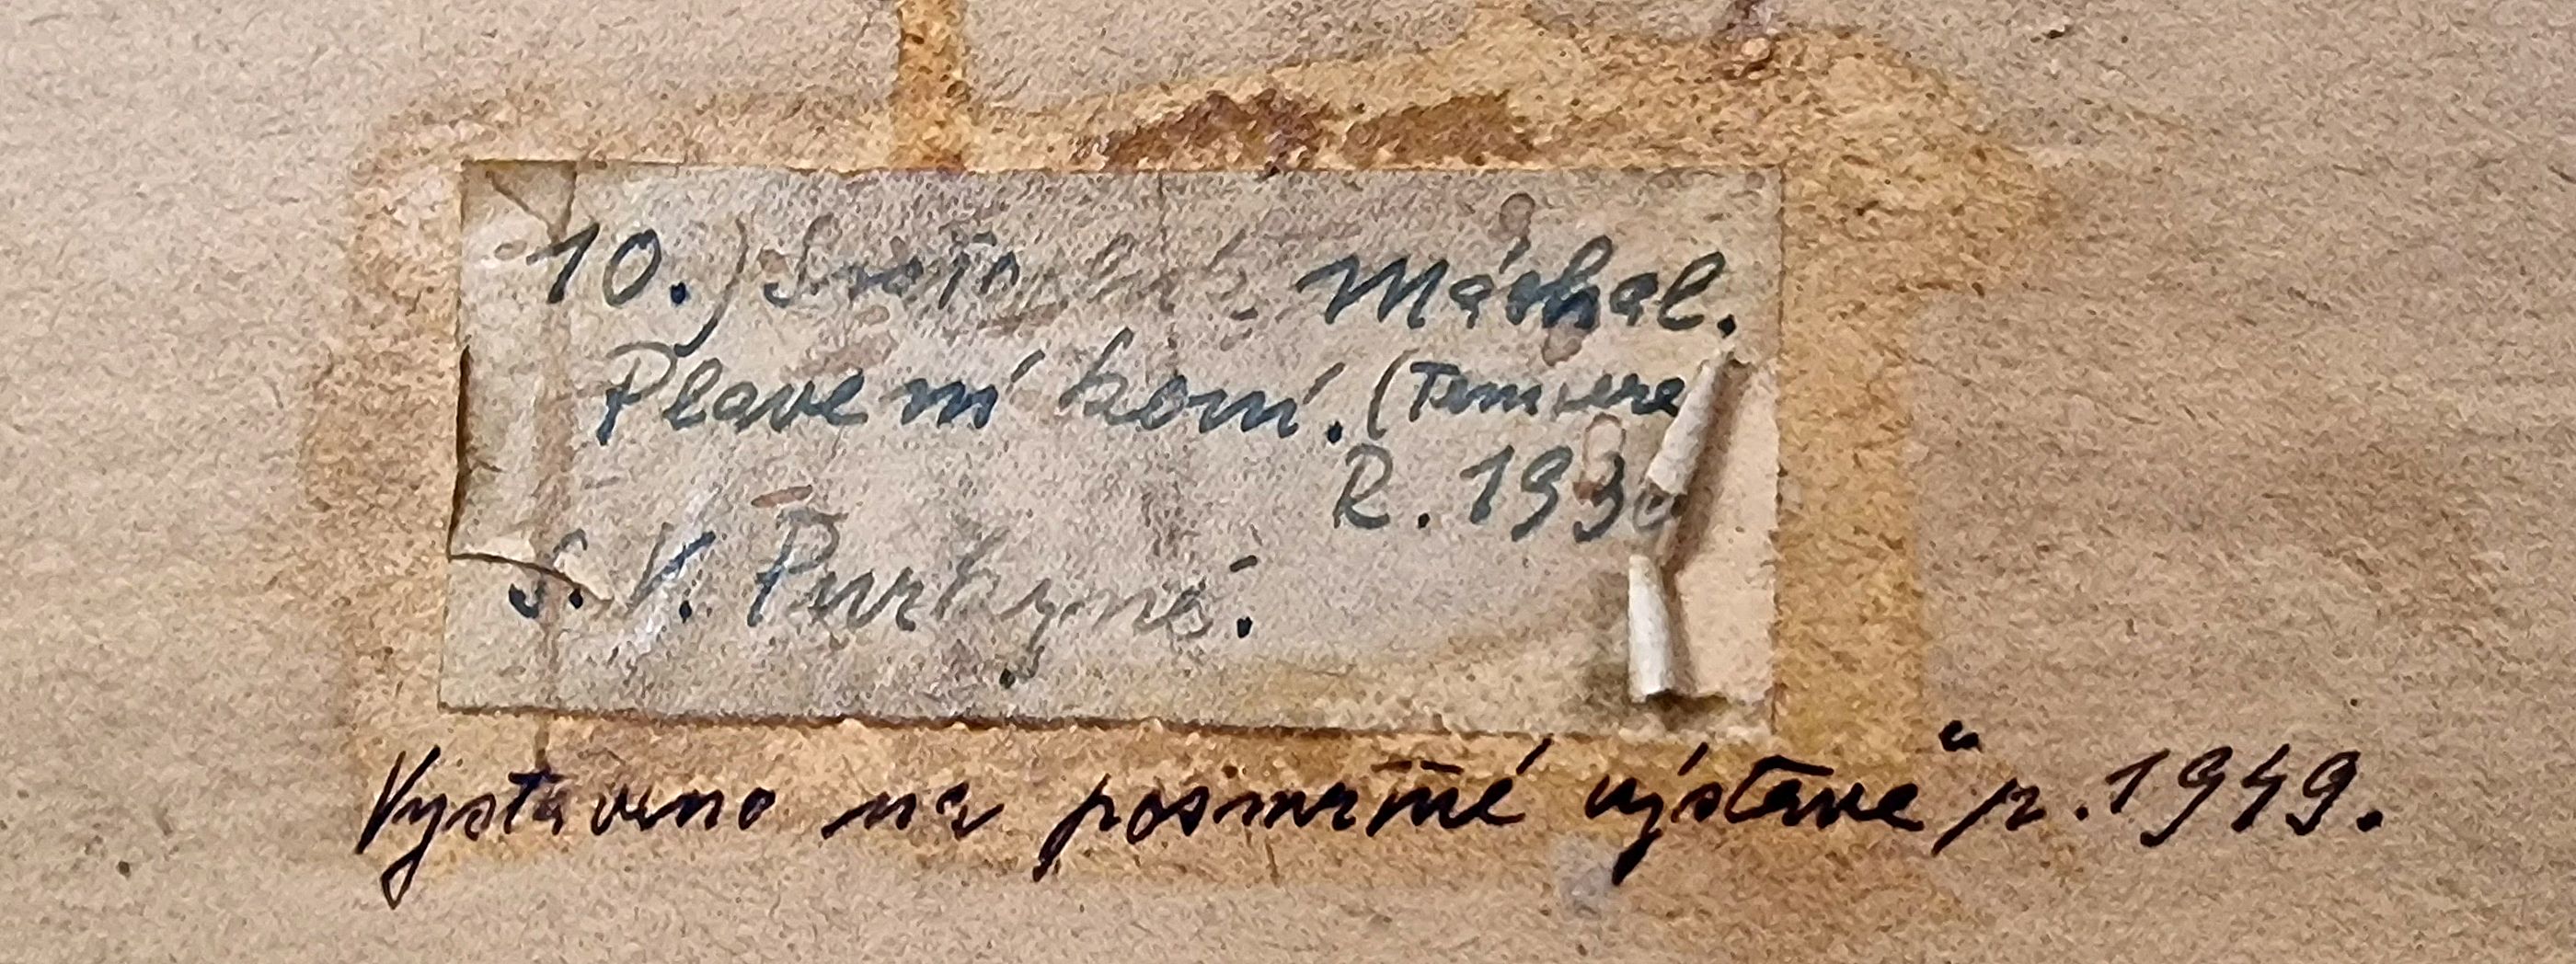 10.) Máchal.
Plavení koní. (Tempera
R. 193
S. V. Purkyně.
Vystaveno na posmrtné výstavě r. 1949.